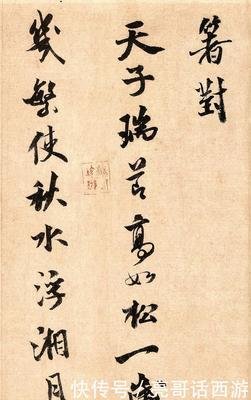 箸對
天子瑞高如松一
幾繁使秋水浮湘月
快传号/亮哥话西游